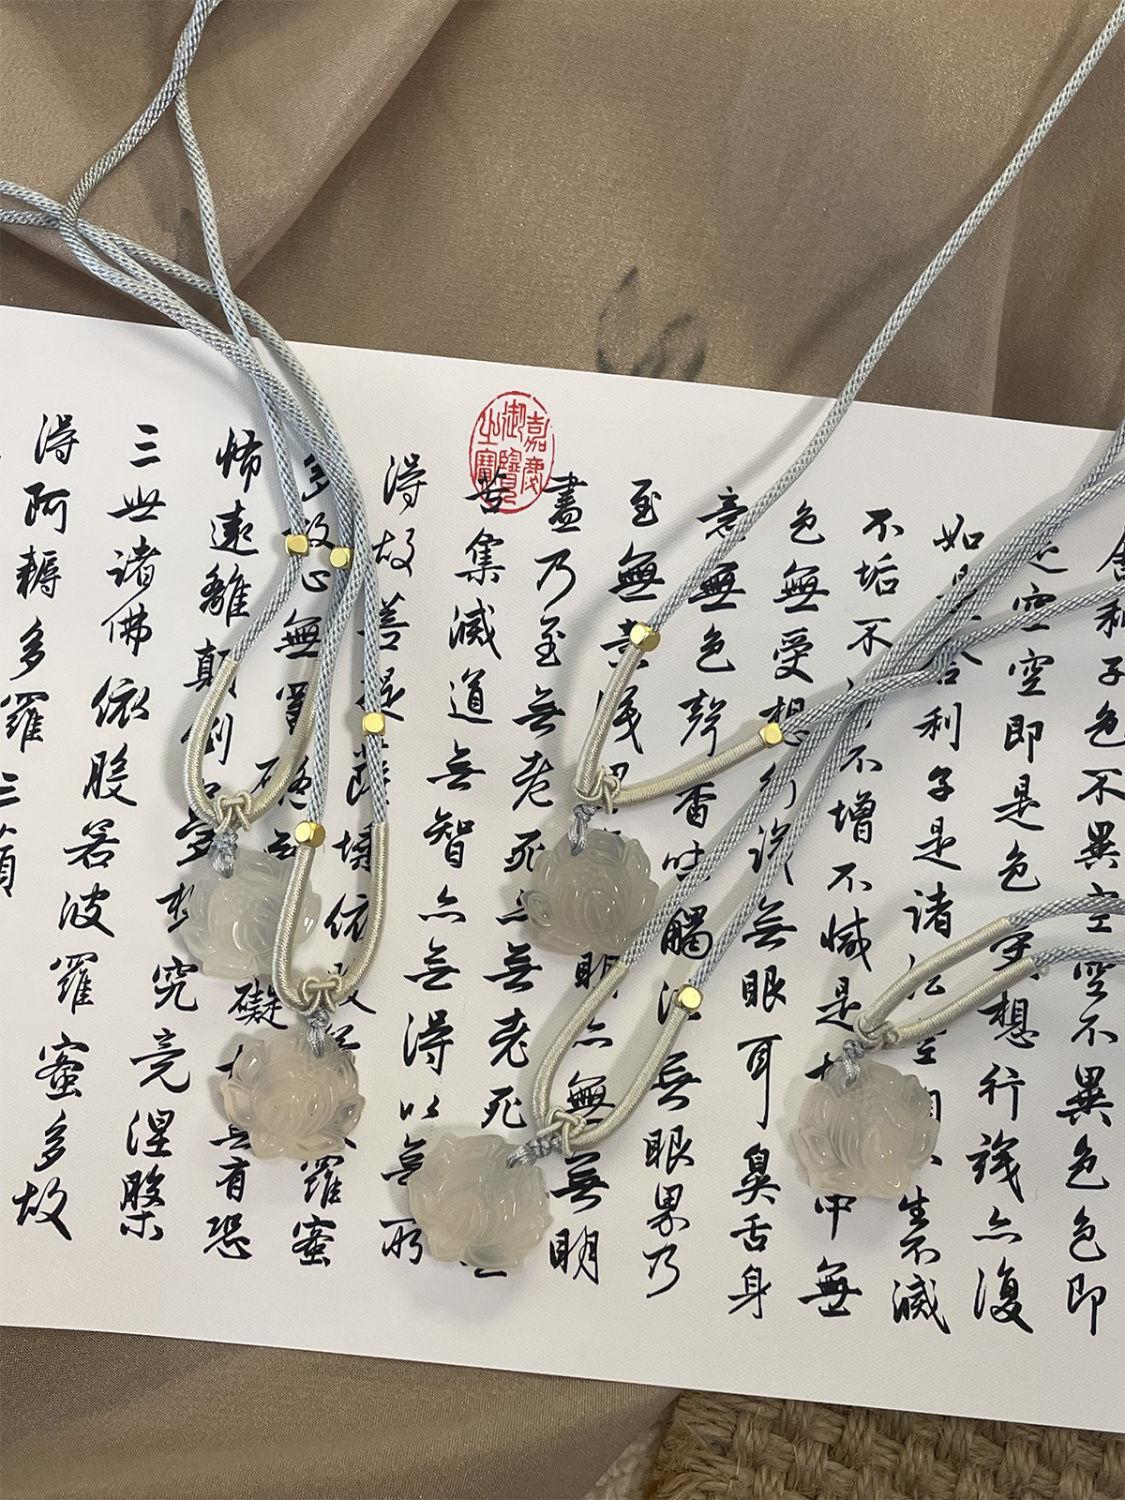 舍利子色不異空空不異色色即
是空空即是色受想行識亦復
如是舍利子是諸法空相不生不滅
不垢不淨不增不減是故空中無
色無受想行識無眼耳鼻舌身
意無色聲香味觸法無眼界乃
至無意識界無無明亦無無明
盡乃至無老死亦無老死
苦集滅道無智亦無得以無所
得故菩提薩埵依般若波羅蜜
多故心無罣礙無罣礙故無有恐
怖遠離顛倒夢想究竟涅槃
三世諸佛依般若波羅蜜多故
得阿耨多羅三藐
嘉慶御覽之寶